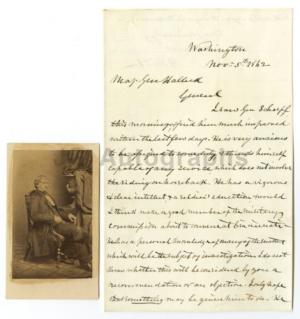 Washington
Nov. 5th 1862
Maj. Gen Halleck
General
I saw Gen Schoepf
this morning & find him much improved
within the last few days. He is very anxious
to be assigned to some duty & thinks himself
capable of any service which does not involve
the riding on horseback. He has a vigorous
& clear intellect & a soldier's education & would
I think make a good member of the military
commission about to convene at Cincinnati
He has a personal knowledge of many of the matters
which will be the subject of investigation. I do not
know whether this will be considered by you a
recommendation or an objection. I only hope
that something may be given him to do. He
Autographs